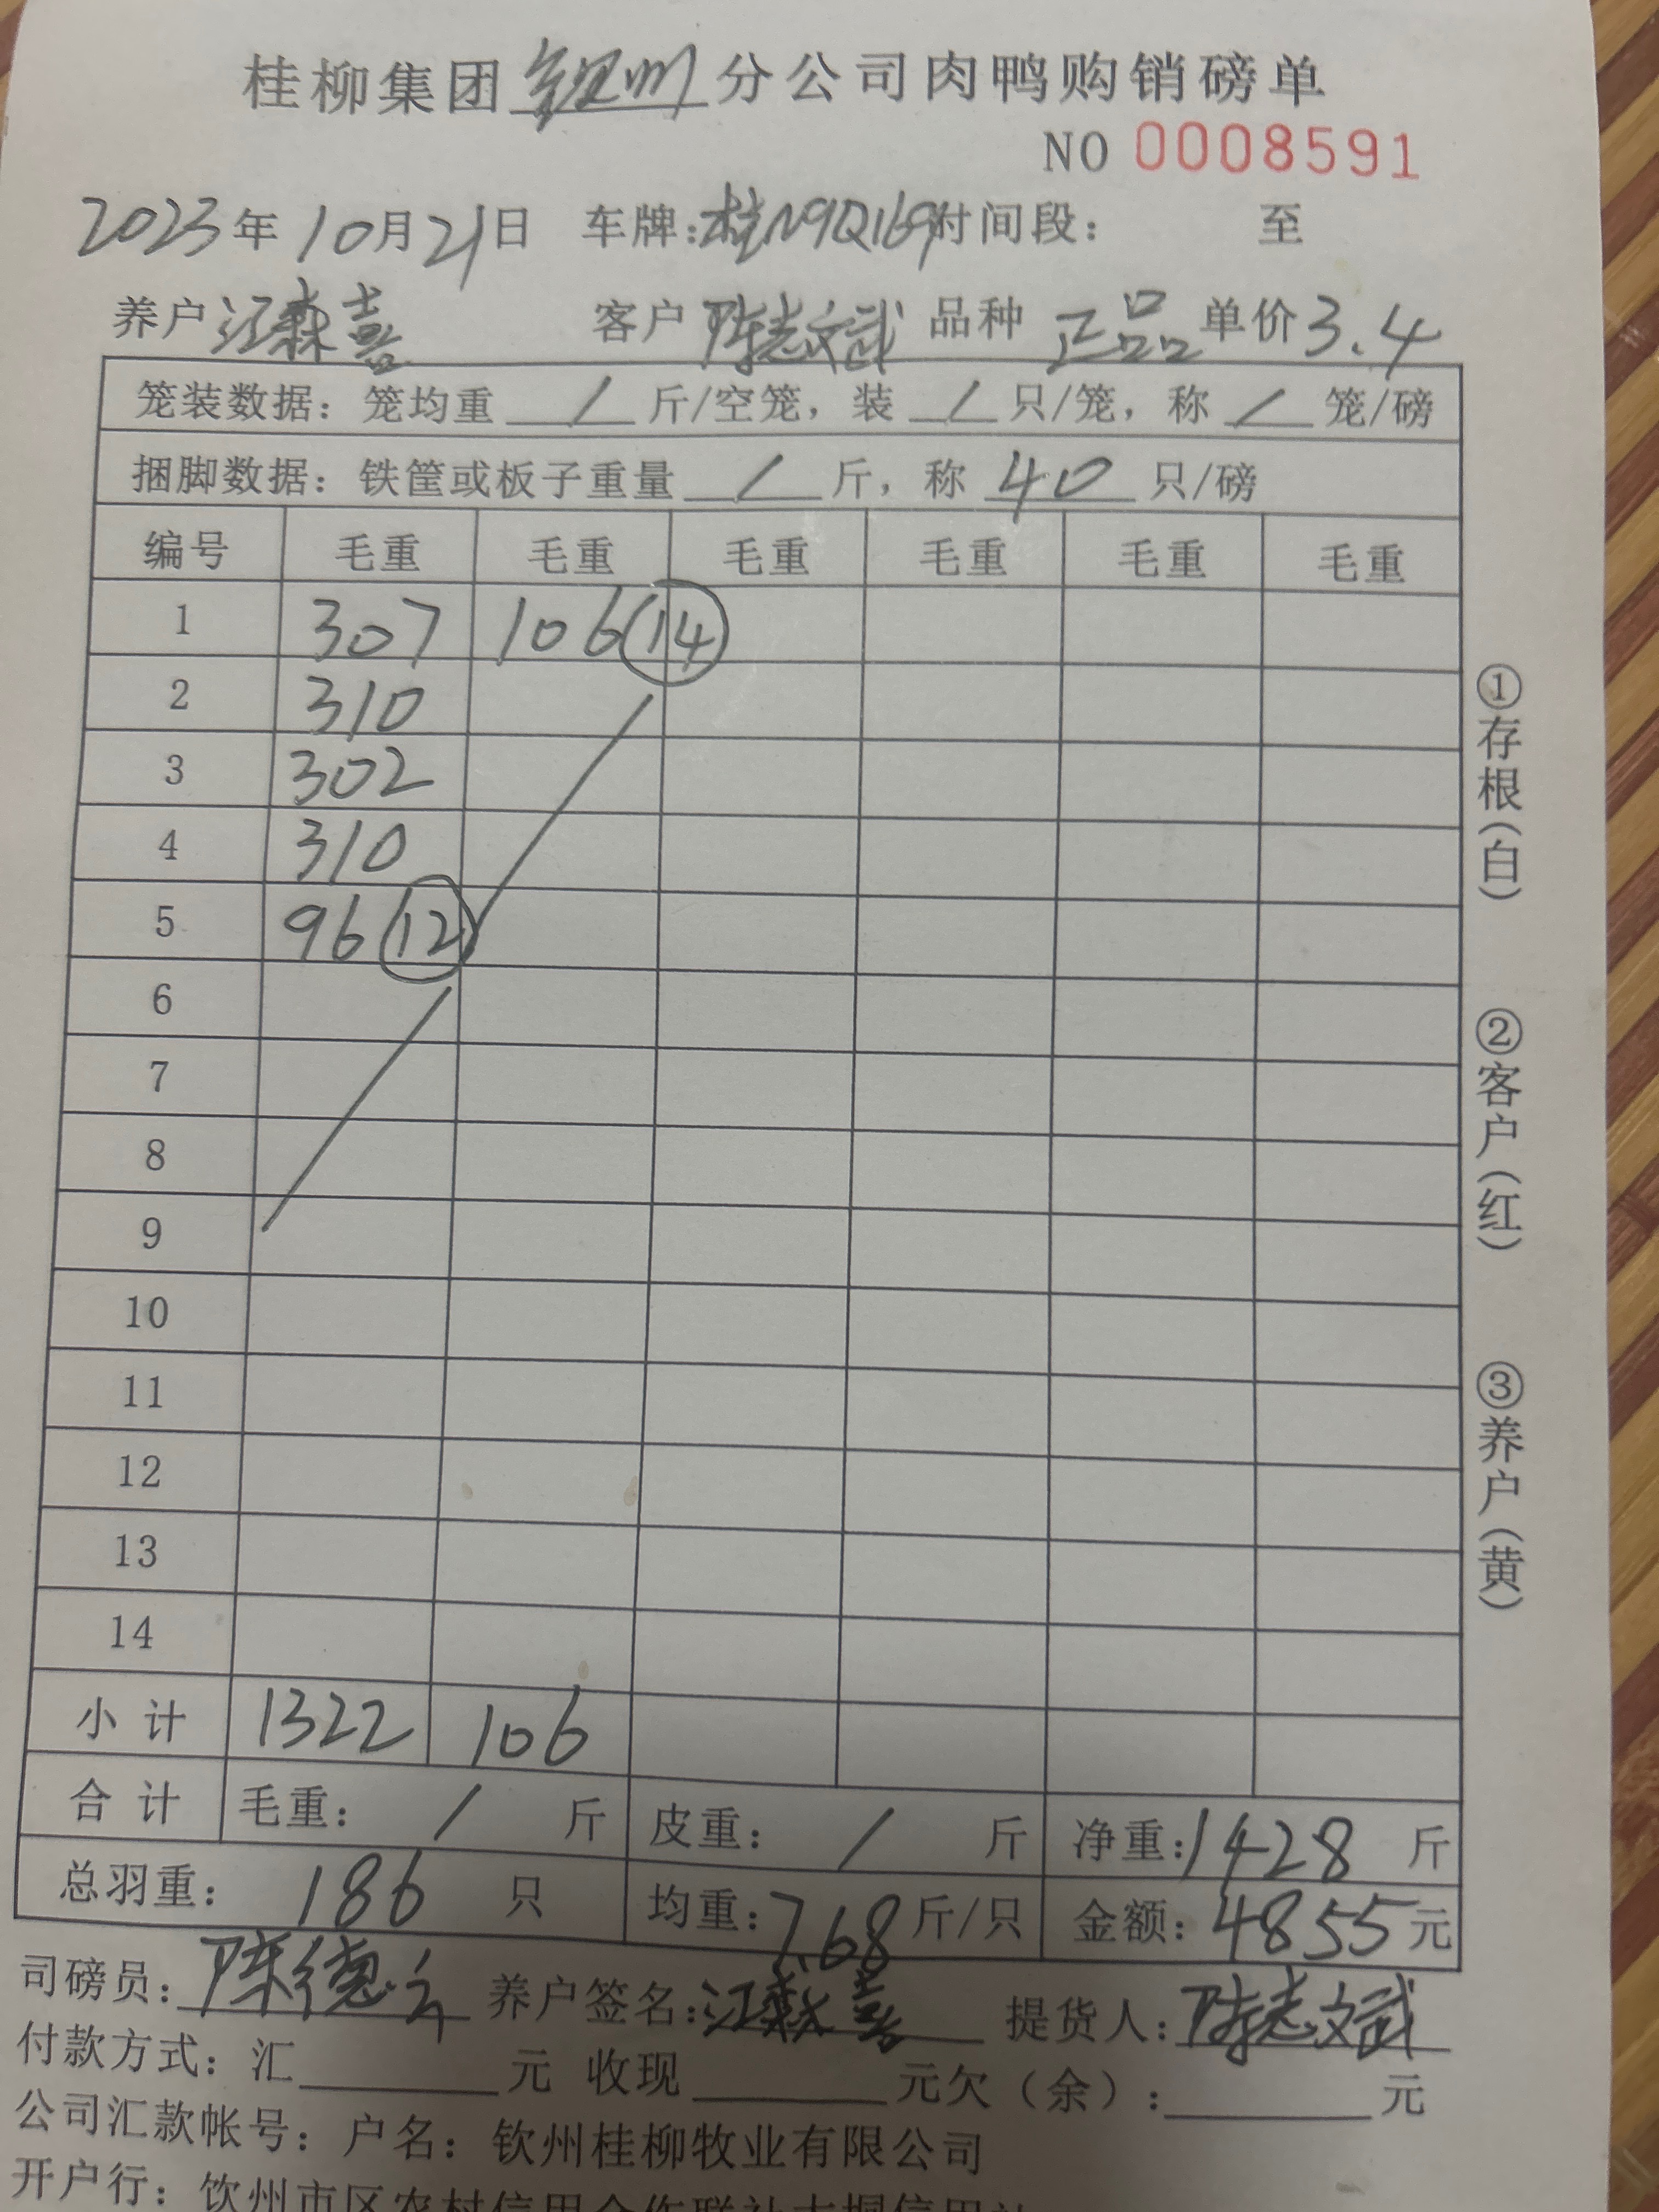 桂柳集团钦州分公司肉鸭购销磅单
NO 0008591
2023年10月21日 车牌:桂N9Q169时间段: 至
养户江森喜 客户陈志斌 品种 正品 单价3.4
笼装数据: 笼均重 / 斤/空笼, 装 / 只/笼, 称 / 笼/磅
捆脚数据: 铁筐或板子重量 / 斤, 称 40 只/磅
编号 毛重 毛重 毛重 毛重 毛重 毛重
1 307 106 14
2 310
3 302
4 310
5 96 12
6
7
8
9
10
11
12
13
14
小计 1322 106
合计 毛重: / 斤 皮重: / 斤 净重:1428 斤
总羽重: 186 只 均重:7.68斤/只 金额:4855元
司磅员:陈德 养户签名:江森喜 提货人:陈志斌
付款方式: 汇 元 收现 元欠(余): 元
公司汇款帐号: 户名: 钦州桂柳牧业有限公司
开户行: 钦州市区农村信用合作联社大垌信用社
①存根(白)
②客户(红)
③养户(黄)